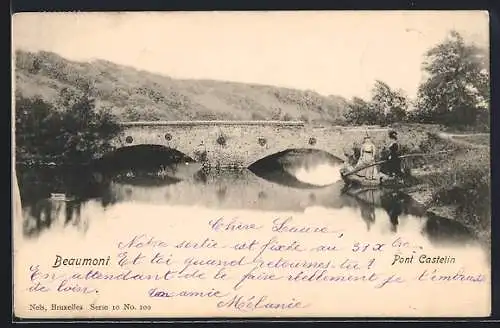 Chère Laure,
Beaumont
Notre sortie est fixée au 31 X bre
Et toi quand retournes-tu?
Pont Castelin
En attendant de le faire réellement je t'embrasse
de loin.
ton amie
Mélanie
Nels, Bruxelles Serie 10 No. 100